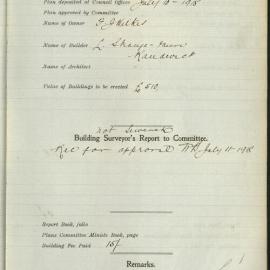 Plan deposited at Council Offices July 10 - 1918
Plan approved by Committee
Name of Owner
Name of Builder L
Randwick
Name of Architect
Value of Buildings to be erected £510
not
Building Surveyor's Report to Committee.
Rec for approval July 11 - 1918
Report Book, folio
Plans Committee Minute Book, page
Building Fee Paid 15/-
Remarks.